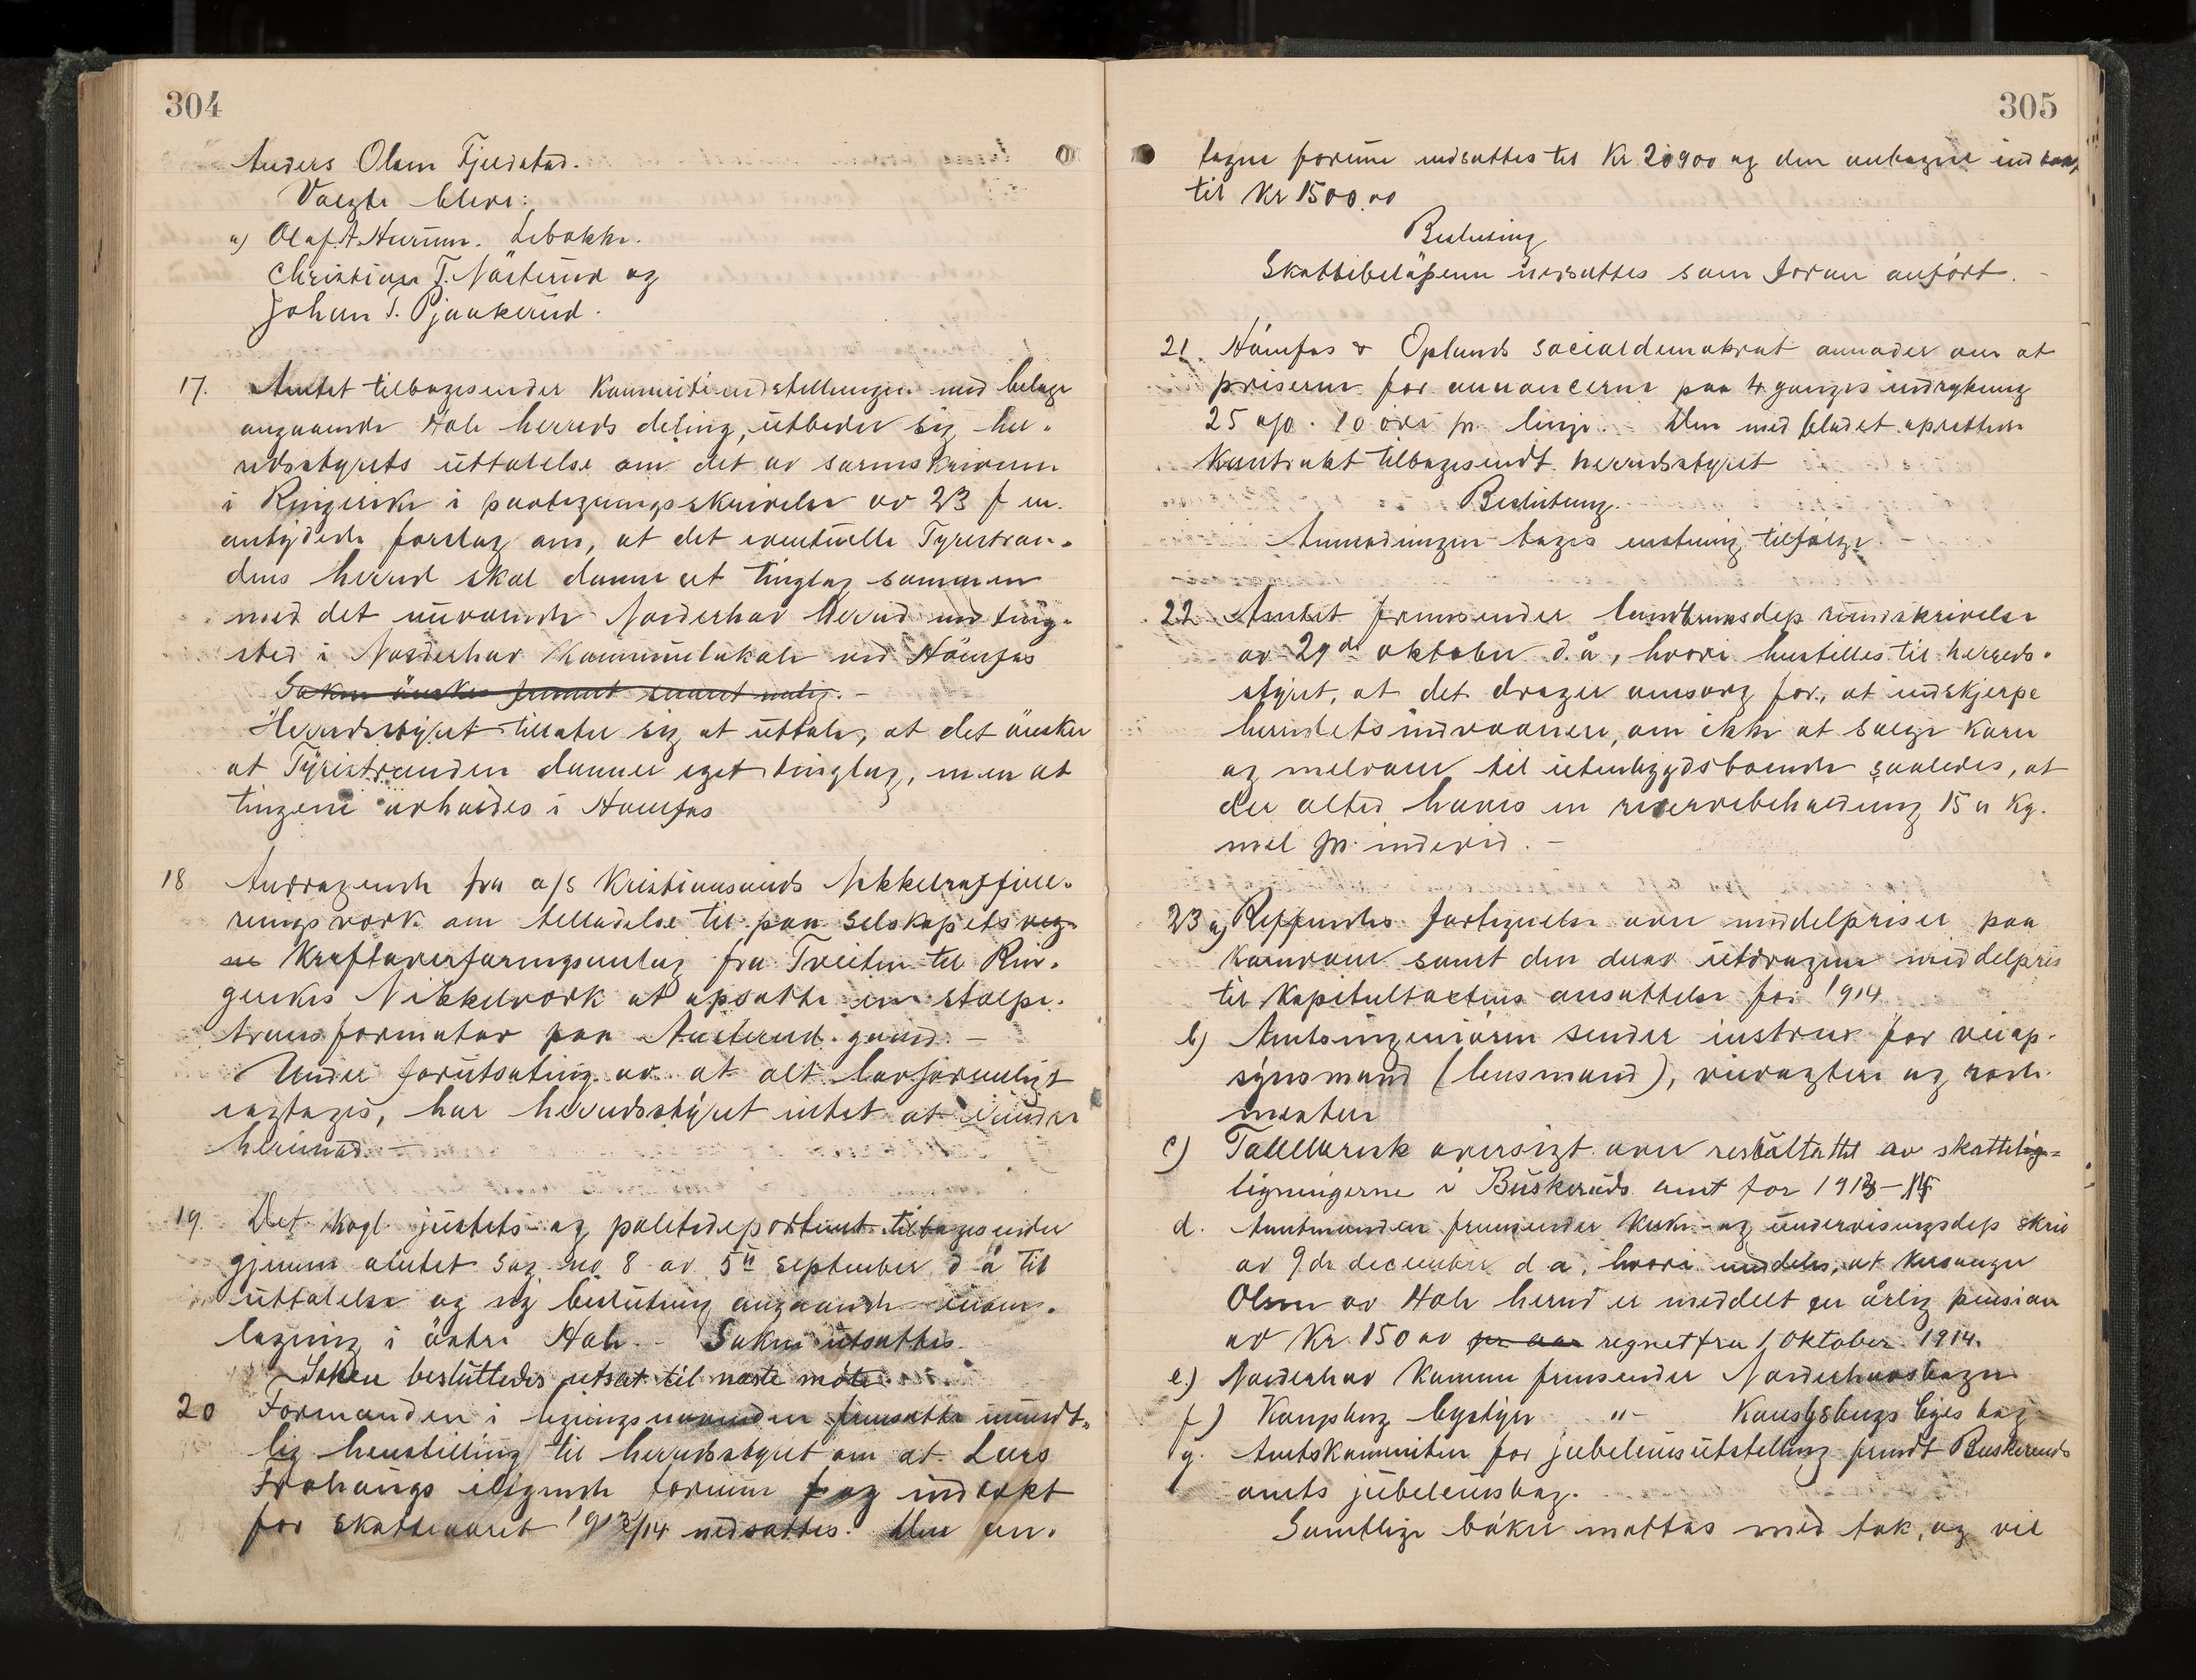 304
Anders Olsen Fjeldstad.
Valgte blev:
a) Olaf A. Hurum. Libakke.
Christian T. Nästerud og
Johan T. Pjaakerud.
17. Amtet tilbagesender Kommiteindstillingen med bilage
angaaende Hole herreds deling, utbeder sig her-
redsstyrets uttalelse om det av sorenskriveren
i Ringerike i paategningsskrivelse av 23 f m.
antydede forslag om, at det eventuelle Tyristran-
dens herred skal danne et tinglag sammen
med det nuværende Norderhov herred med ting-
sted i Norderhov Kommunelokale ved Hönefos
Saken önskes fremmet snarest mulig. -
Herredsstyret tillater sig at uttale, at det önsker
at Tyristranden danner eget tinglag, men at
tingene avholdes i Hönefos
18 Andragende fra a/s Kristianssands Nikkelraffine-
ringsverk om tilladelse til paa selskapets eg-
ne Kraftoverföringsanlæg fra Tveiten til Rin-
gerikes Nikkelverk at opsætte en stolpe-
transformator paa Austerud grund. -
Under forutsætning av at alt lovformeligt
iagtages, har herredsstyret intet at erindre
herimod. -
19. Det kogl justits- og politidepartemt tilbagesender
gjennem amtet sag no 8 av 5te september d å til
uttalelse og ny beslutning angaaende
lægning i östre Hole. - Saken utsættes.
Saken besluttedes utsat til næste möte.
20 Formanden i ligningsnevnden fremsatte mundt-
lig henstilling til herredsstyret om at Lars
Frohaugs lignede formue og indtækt
for skatteaaret 1913/14 nedsættes. Den an-
305
tagne formue nedsættes til Kr 20900 og den antagne indtækt
til Kr 1500.00
Beslutning
Skattebelöpene nedsættes som foran anfört. -
21. Hönefos & Oplands socialdemokrat anmoder om at
priserne for annoncerne paa 4 ganges indrykning
25 o/o. 10 öre pr linje. Den med bladet oprettede
Kontrakt tilbagesendt herredsstyret
Beslutning.
Anmodningen tages enstemmig tilfölge. -
22. Amtet fremsender landbruksdep rundskrivelse
av 29de oktober d.å, hvori henstilles til herreds-
styret, at det drager omsorg for, at indskjerpe
herredets indvaanere, om ikke at sælge korn
og melvarer til utenbygdsboende saaledes, at
der altid haves en reservebeholdning 15 a Kg.
mel pr. individ. -
23 a) Fortegnelse over middelpriser paa
Kornvarer samt den derav utdragne middelpris
til Kapitultakstens ansættelse for 1914
b) Amtsingeniören sender instrux for veiop-
synsmand (lensmand), veivogtere og rode-
mestere
c) Tabellarisk oversigt over resultattet av skattelig-
ligningerne i Buskeruds amt for 1913-14
d. Amtmanden fremsender Kirke- og undervisningsdep skriv
av 9de december d a, hvori meddeles, at Kirsanger
Olsen av Hole herred er meddelt en årlig pension
av Kr. 150 00 pr aar regnet fra 1 Oktober 1914.
e.) Norderhov Kommune fremsender Norderhovsboken
f.) Kongsberg bystyre " - Kongsbergs byes bog
g. Amtskommiteen for jubelæumsutstilling sendt Buskeruds
amts jubelæumsbog.
Samtlige böker mottas med tak, og vil